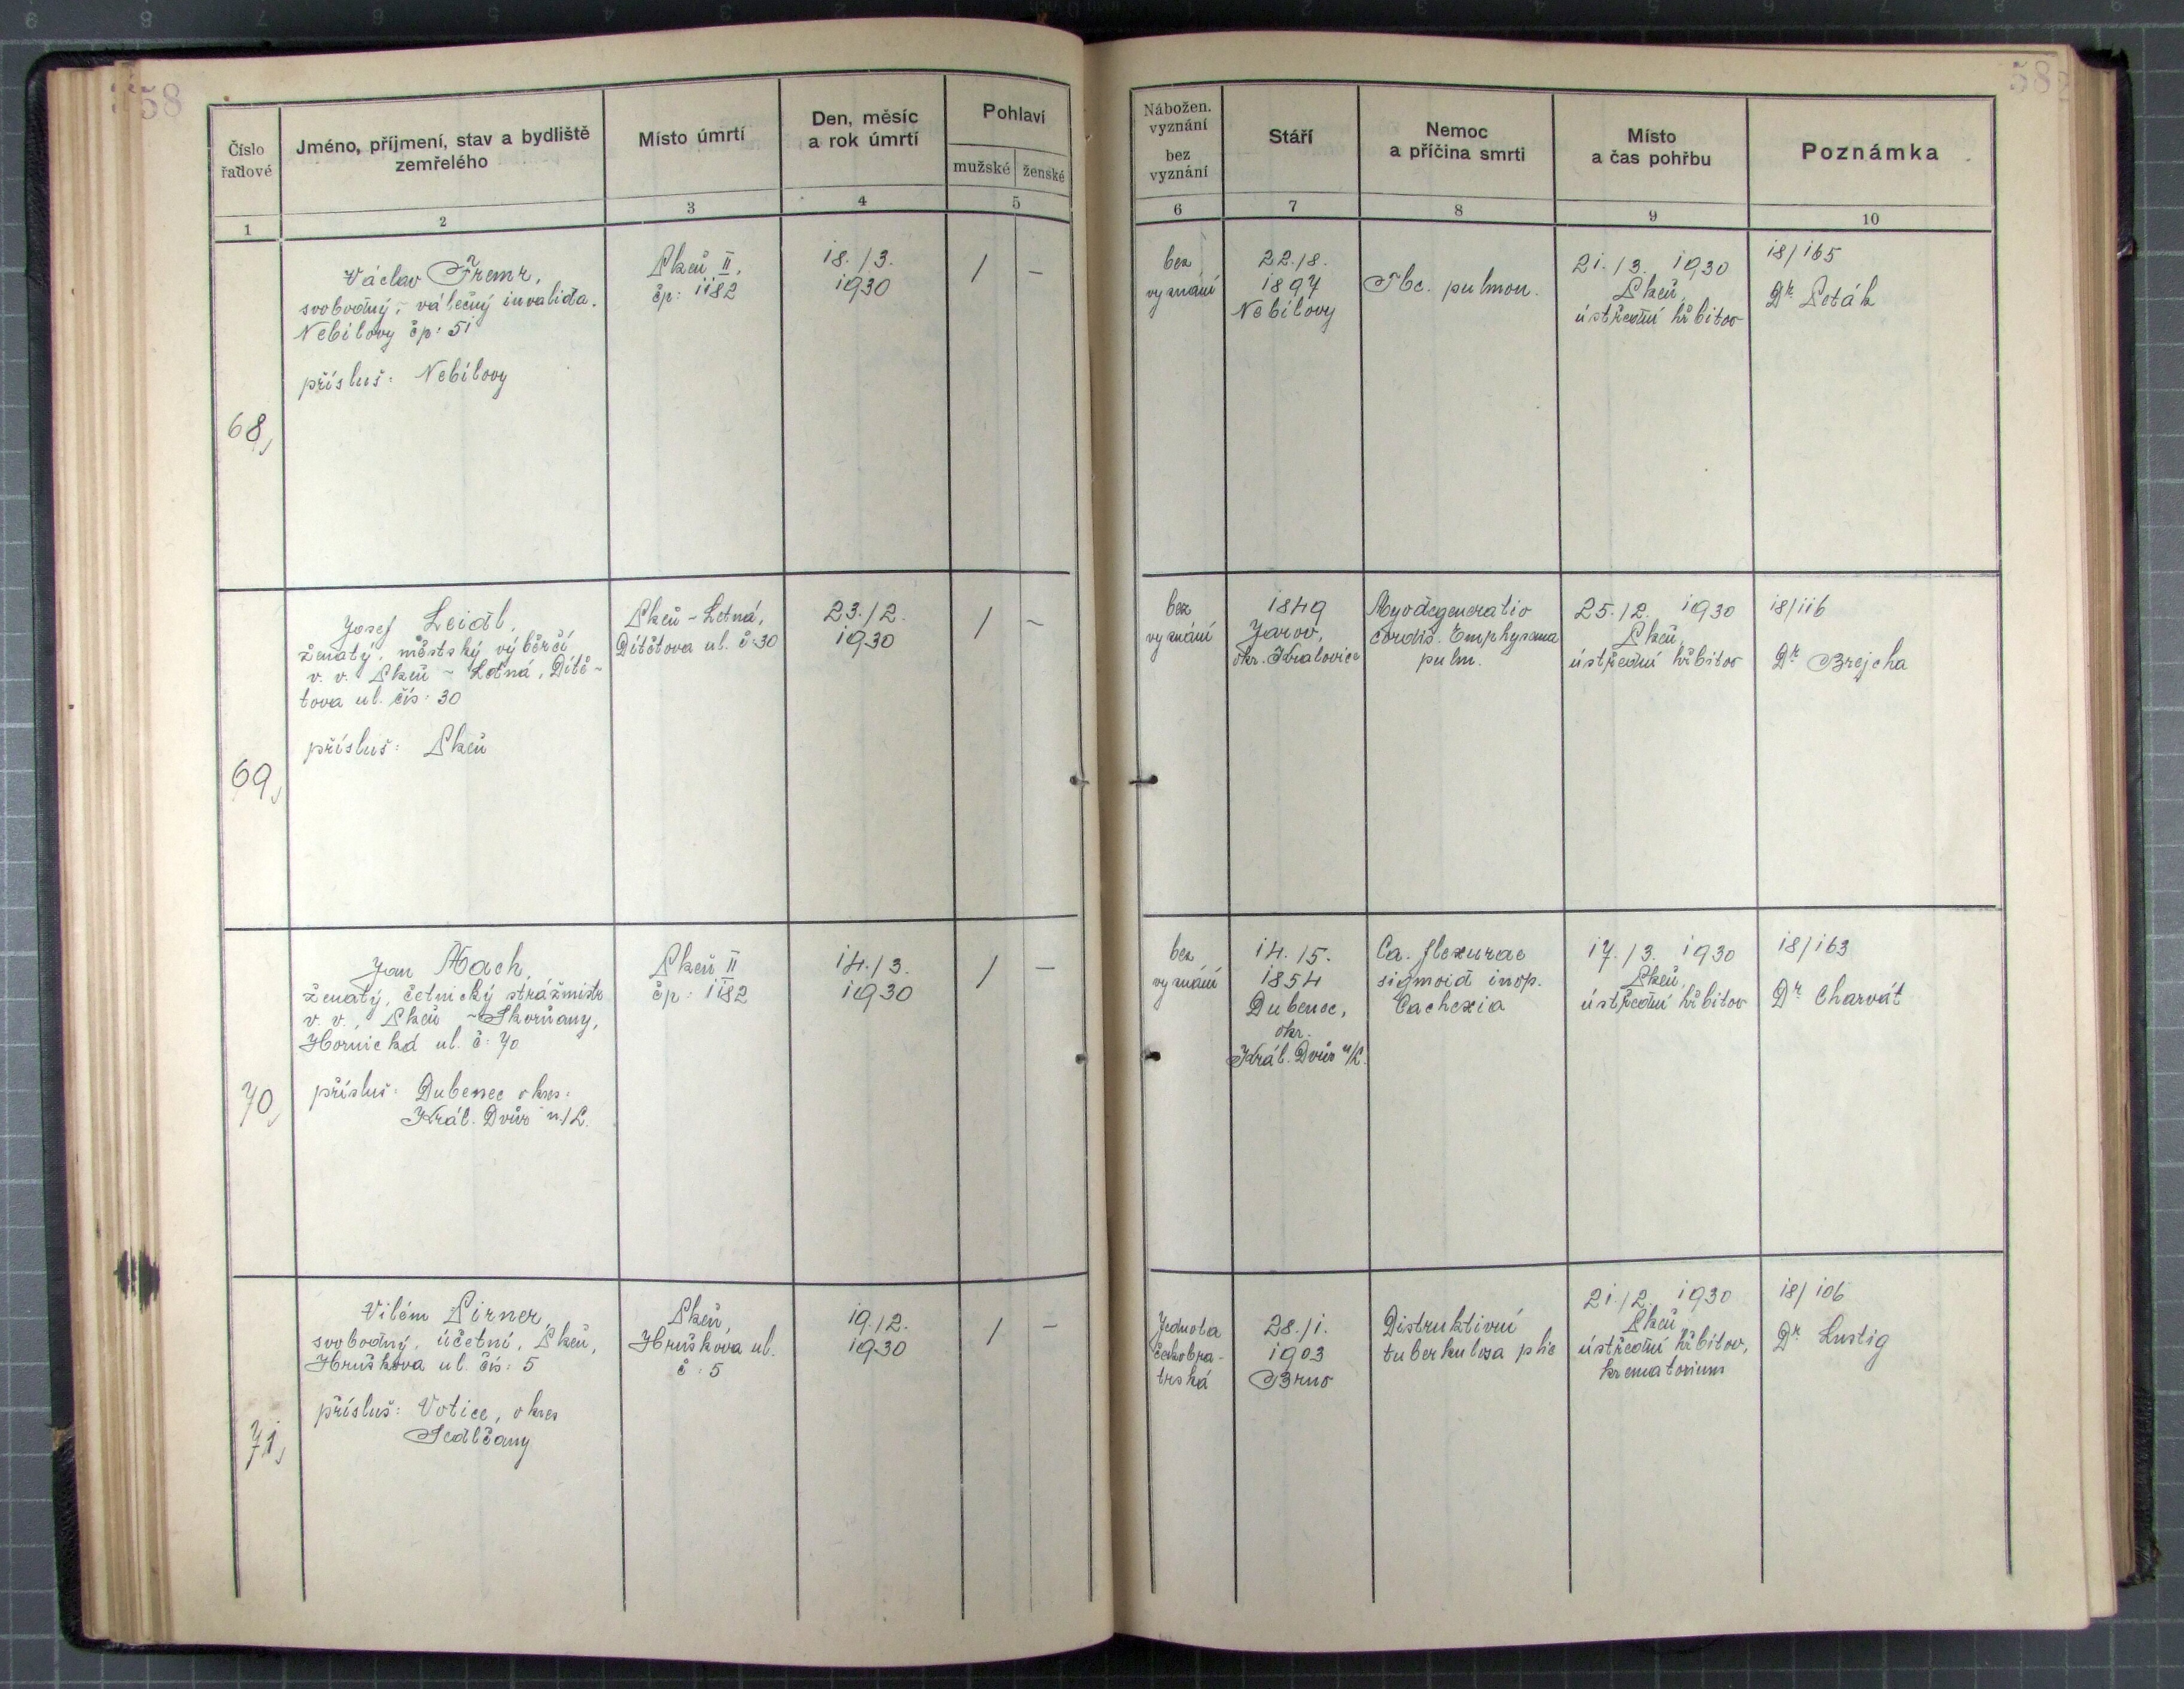 58
58
Číslo
řadové
Jméno, příjmení, stav a bydliště
zemřelého
Místo úmrtí
Den, měsíc
a rok úmrtí
Pohlaví
mužské
ženské
1
2
3
4
5
Nábožen.
vyznání
bez
vyznání
Stáří
Nemoc
a příčina smrti
Místo
a čas pohřbu
Poznámka
6
7
8
9
10
68,
Václav Fremr,
svobodný, válečný invalida.
Nebílovy čp: 51
přísluš: Nebílovy
Plzeň II,
čp: 1182
18./3.
1930
/
–
bez
vyznání
22./8.
1897
Nebílovy
Tbc. pulmon.
21./3. 1930
Plzeň,
ústřední hřbitov
18/165
Dr Leták
69,
Josef Leidl,
ženatý, městský výběrčí
v. v. Plzeň - Letná, Dítě-
tova ul. čís: 30
přísluš: Plzeň
Plzeň - Letná,
Dítětova ul. č: 30
23./2.
1930
/
–
bez
vyznání
1849
Jarov,
okr. Kralovice
Myodegeneratio
cordis. Emphysema
pulm.
25./2. 1930
Plzeň,
ústřední hřbitov
18/116
Dr Brejcha
70,
Jan Mach,
ženatý, četnický strážmistr
v. v., Plzeň - Skvrňany,
Hornická ul. č: 70
přísluš: Dubenec okres:
Král. Dvůr n./L.
Plzeň II
čp: 1182
14./3.
1930
/
–
bez
vyznání
14./5.
1854
Dubenec,
okr.
Král. Dvůr n/L.
Ca. flexurae
sigmoid inop.
Cachexia
17./3. 1930
Plzeň,
ústřední hřbitov
18/163
Dr Charvát
71,
Vilém Pirner,
svobodný, účetní, Plzeň,
Hruškova ul. čís: 5
přísluš: Votice, okres
Sedlčany
Plzeň,
Hruškova ul.
č: 5
19./2.
1930
/
–
Jednota
českobra-
trská
28./1.
1903
Brno
Distruktivní
tuberkulosa plic
21./2. 1930
Plzeň,
ústřední hřbitov,
krematorium
18/106
Dr Lustig